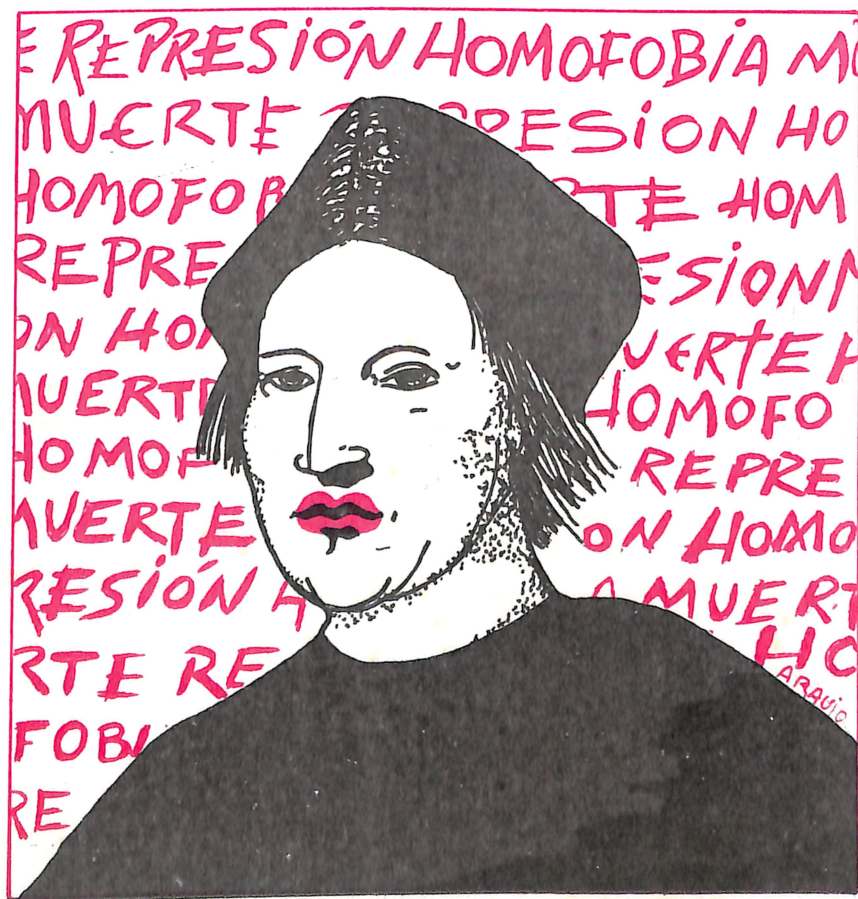 E REPRESIÓN HOMOFOBIA MU
MUERTE RESION HO
HOMOFOB RTE HOM
REPRE ESION M
ON HOM UERTE H
MUERTE HOMOFO
HOMOF REPRE
MUERTE ON HOMO
RESIÓN H A MUERT
RTE RE HO
FOBI
RE
ARAUJO